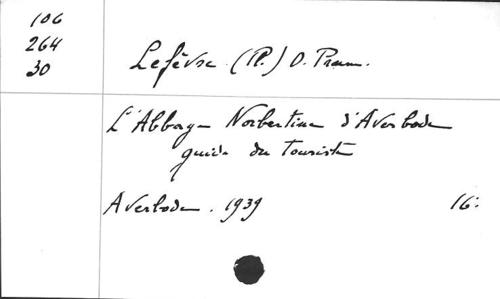 106
264
30
Lefèvre. (Pl.) O. Praem.
L'Abbaye Norbertine d'Averbode
guide du Touriste
Averbode. 1939 16°